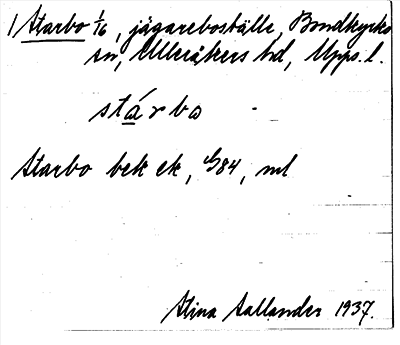 1) Starbo 1/16, jägareboställe, Bondkyrko
sn, Ulleråkers hd, Upps. l.
stárbo
Starbo bek ek, G84, ml
Stina Aallander 1937.